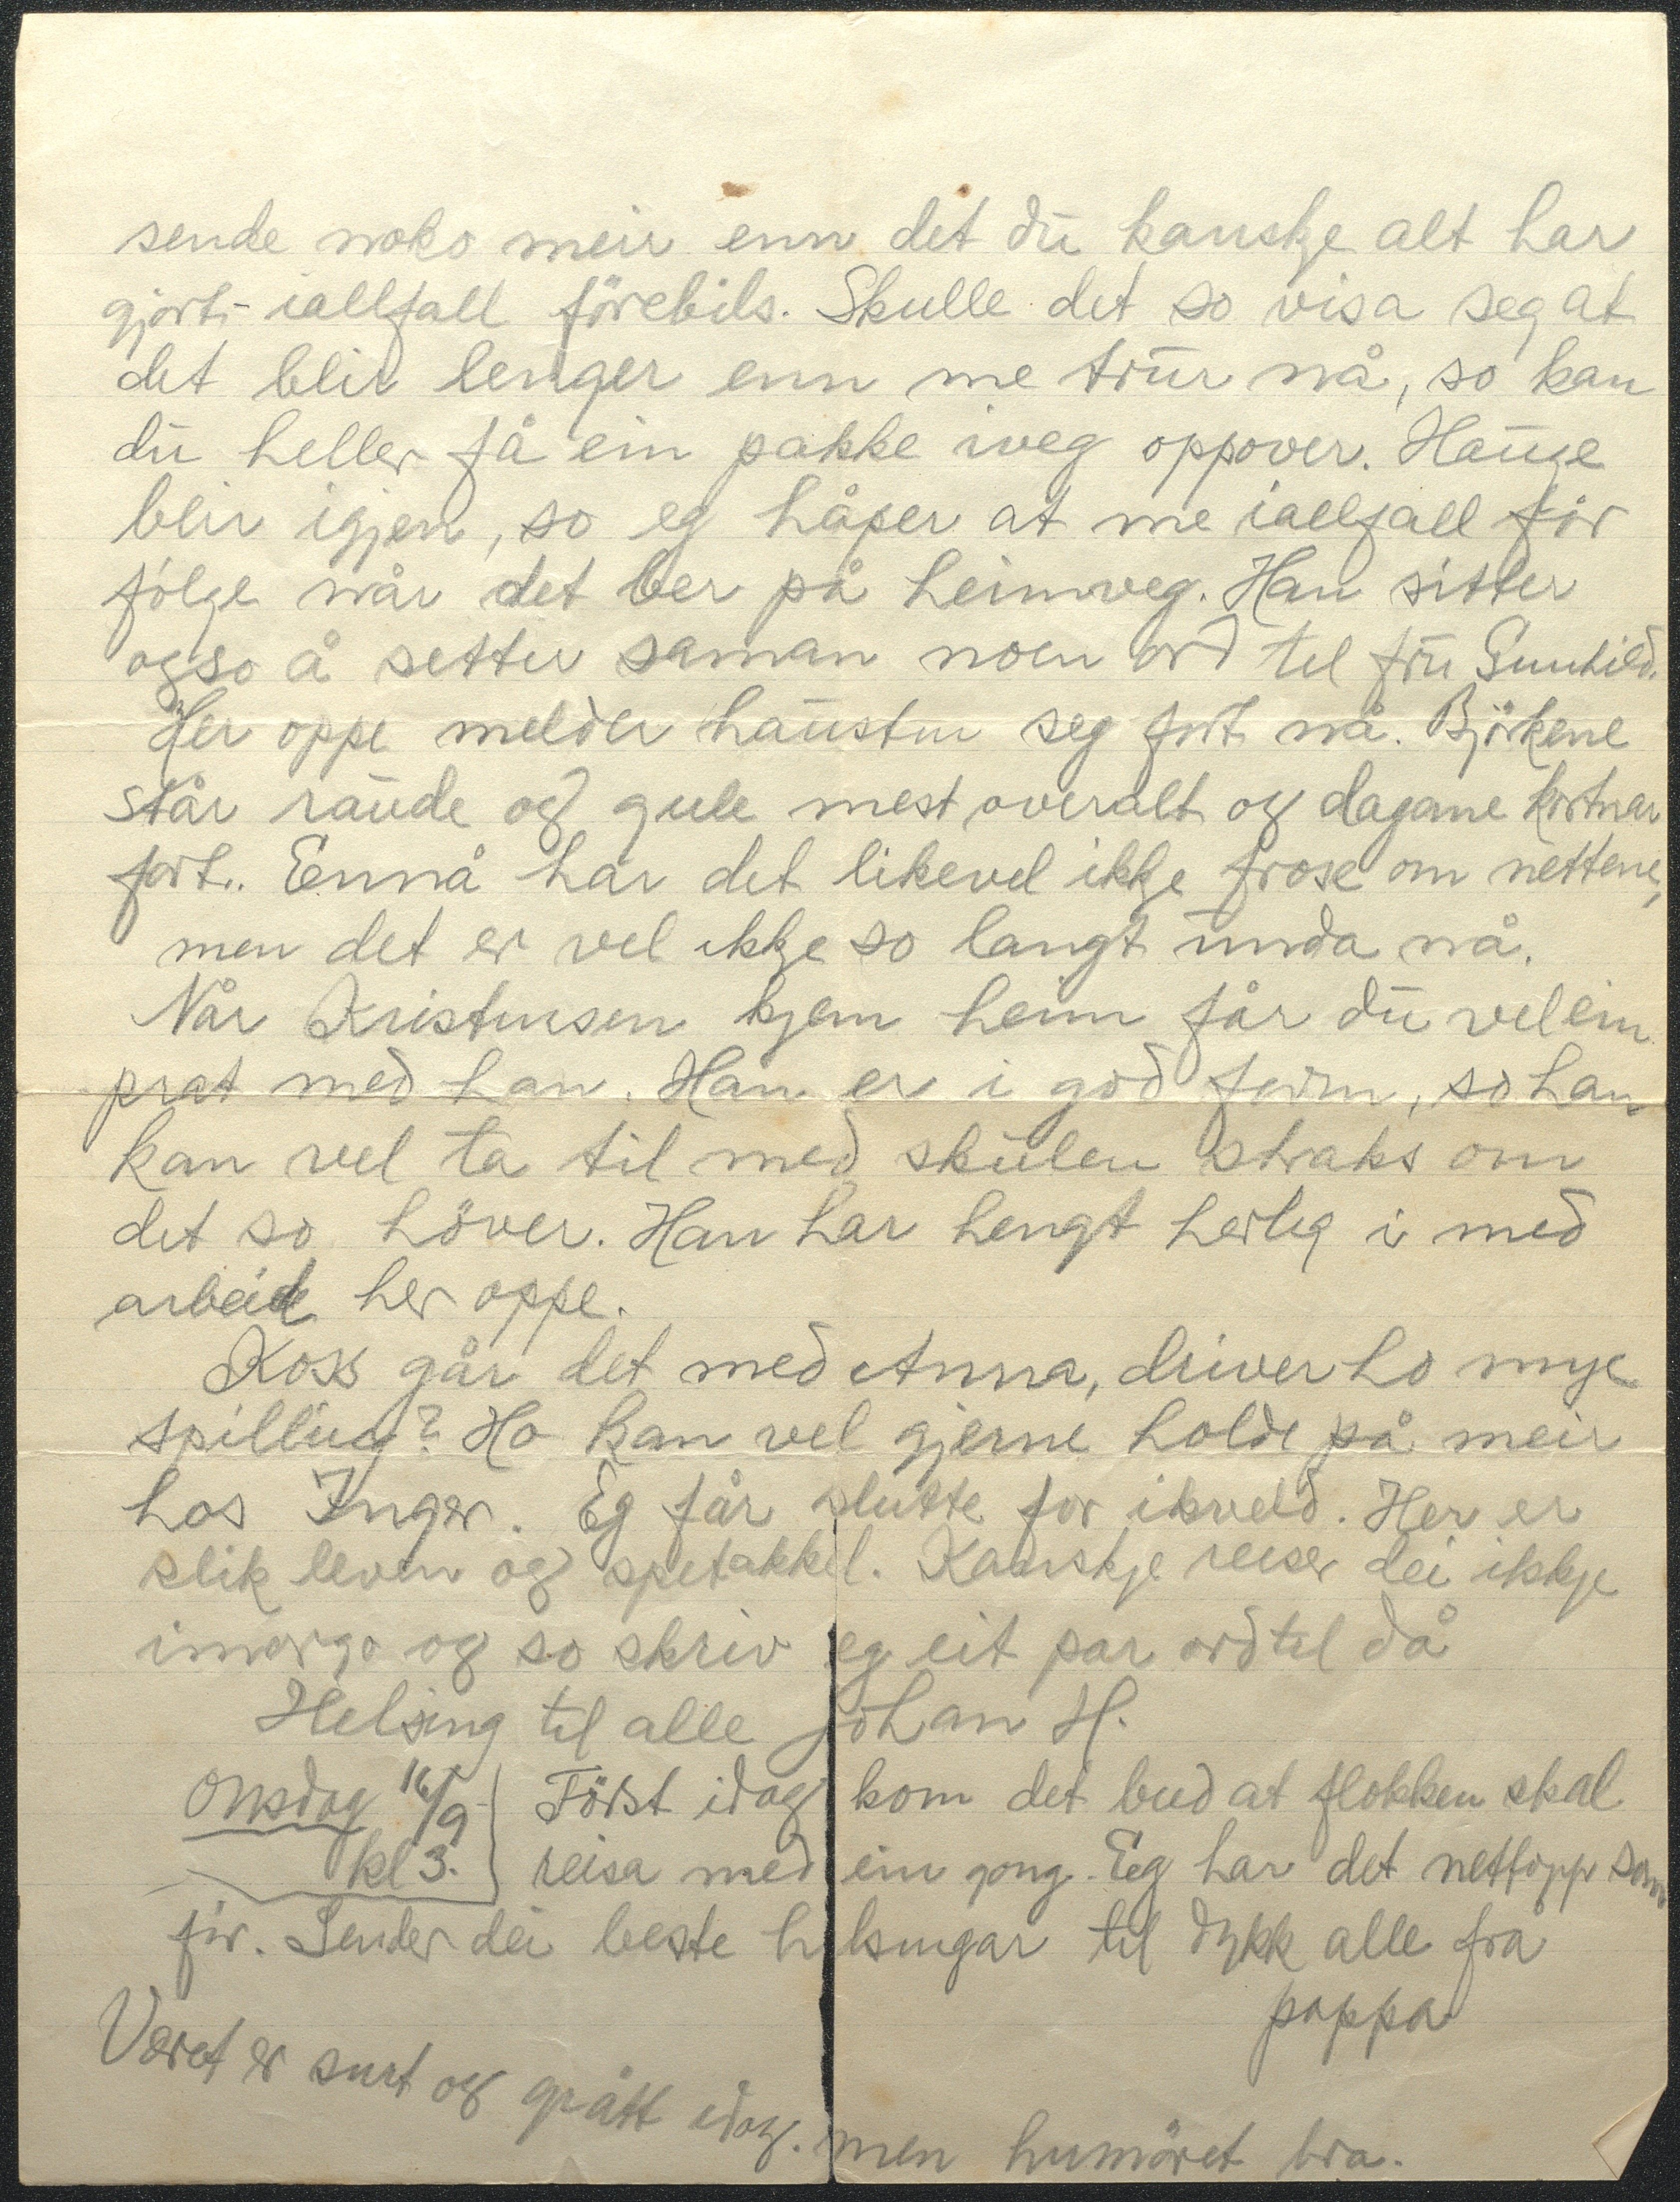 sende noko meir enn det du kanskje alt har
gjort - iallfall förebils. Skulle det so visa seg at
det blir lenger enn me trur nå, so kan
du heller få ein pakke iveg oppover. Hauge
blir igjen, so eg håper at me iallfall får
følge når det ber på heimveg. Han sitter
ogso å setter saman noen ord til fru Gunhild.
Her oppe melder hausten seg fort nå. Björkene
står raude og gule mest overalt og dagane kortnar
fort. Ennå har det likevel ikkje frose om nettene,
men det er vel ikkje so langt unda nå.
Når Kristensen kjem heim får du vel ein
prat med han. Han er i god form, so han
kan vel ta til med skulen straks om
det so höver. Han har hengt herleg i med
arbeide her oppe.
Koss går det med Anna, driver ho mye
spilling? Ho kan vel gjerne holde på meir
hos Inger. Eg får slutte for ikveld. Her er
slik leven og spetakkel. Kanskje reiser dei ikkje
imorgo og so skriv eg eit par ord til då
Helsing til alle Johan H.
Onsdag 16/9 Först idag kom det bud at flokken skal
kl 3. reisa med ein gong. Eg har det nettopp som
för. Sender dei beste helsingar til dykk alle frå
pappa
Været er surt og grått idag. men humöret bra.